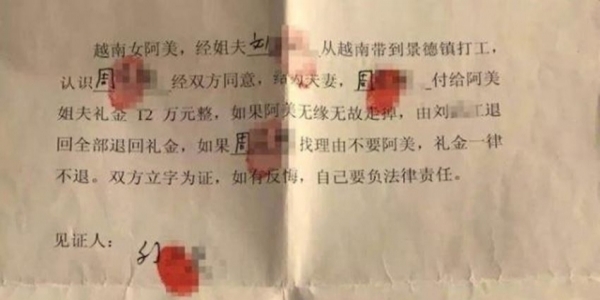 越南女阿美，经姐夫刘 从越南带到景德镇打工，
认识周 经双方同意，结为夫妻，周 付给阿美
姐夫礼金 12 万元整，如果阿美无缘无故走掉，由刘 工退
回全部退回礼金，如果周 找理由不要阿美，礼金一律
不退。双方立字为证，如有反悔，自己要负法律责任。
见证人：